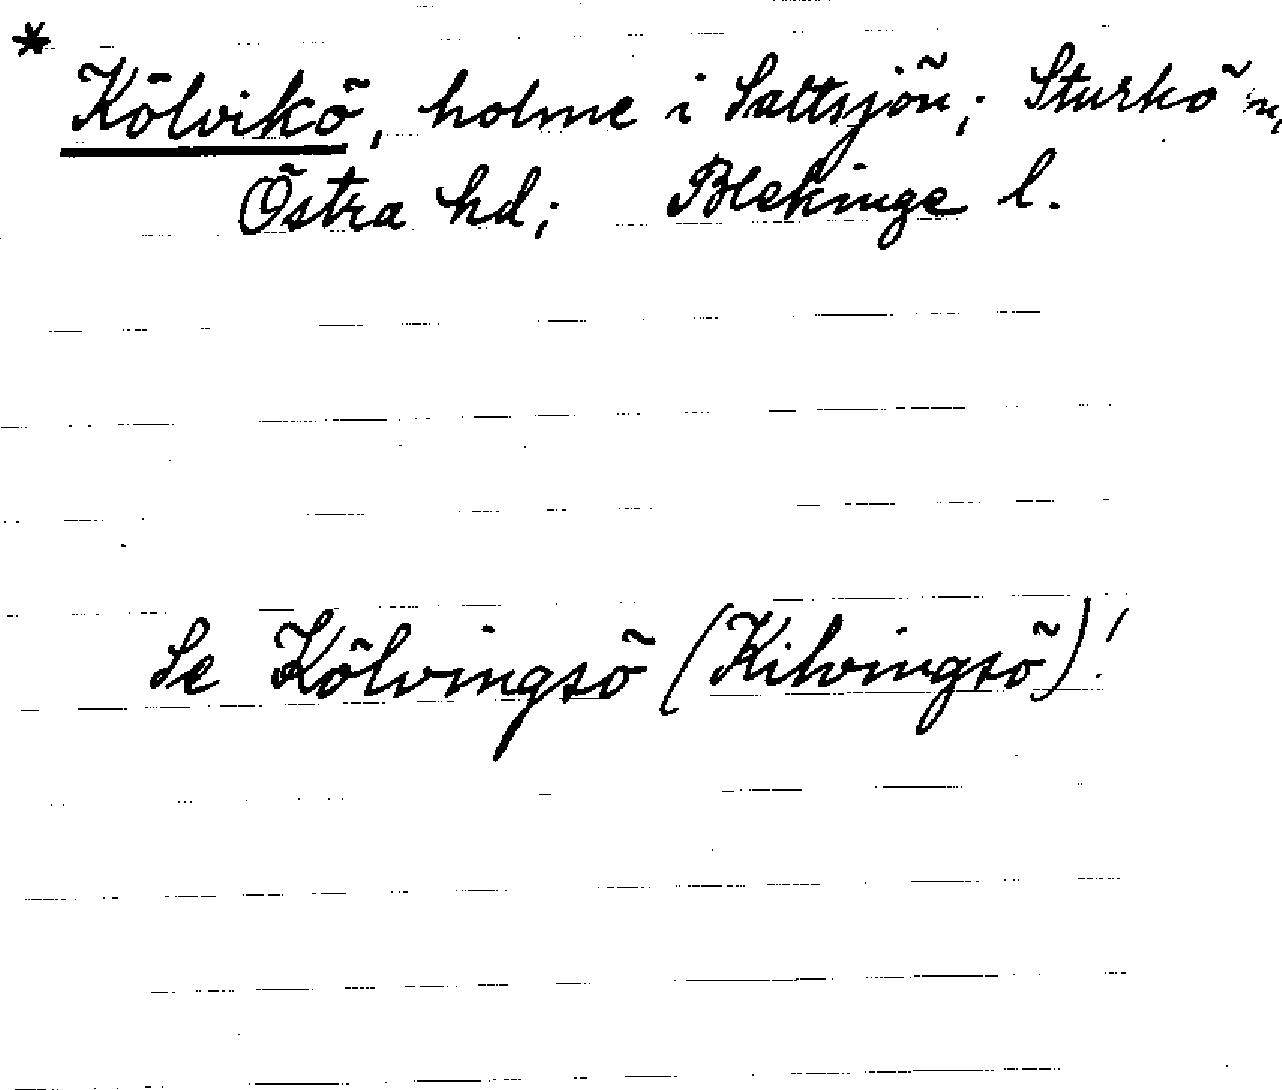 * Kölvikö, holme i Saltsjön; Sturkö sn,
Östra hd; Blekinge l.
Se Kölvingsö (Kilvingsö)!